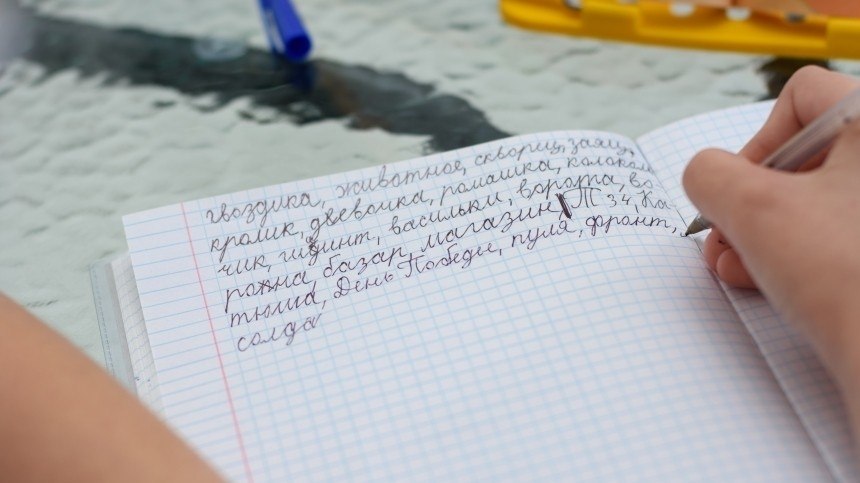 гвоздика, животное, скворец, заяц,
кролик, девочка, ромашка, колоколь
чик, гиацинт, васильки, ворота, во
рона базар, магазин, Т 34, Ка
тюша, День Победы, пуля, фронт,
солда